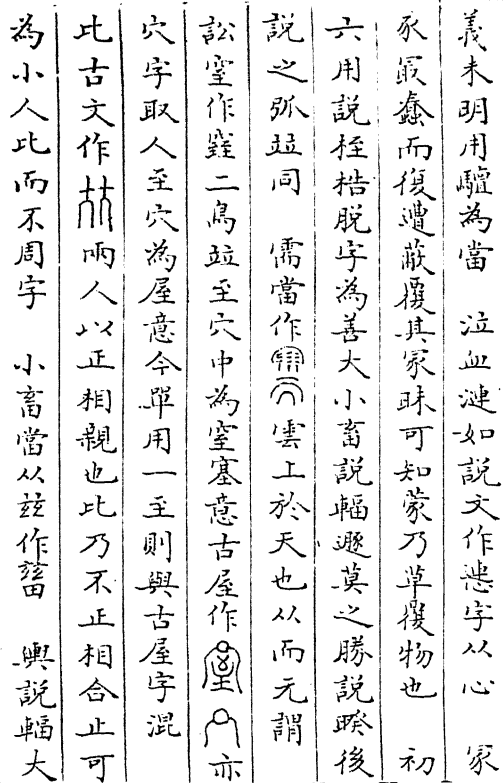 義未明用驢為當　泣血漣如說文作㦁字从心　冡
豕㝡蠢而復遭蔽覆其冡昧可知蒙乃草覆物也　初
六用說桎梏脱字為善大小畜說輻遯莫之勝說暌後
說之弧竝同　需當作雲上於天也从而无謂
訟窒作二鳥竝至穴中為窒塞意古屋作亦
穴字取人至穴為屋意今單用一至則與古屋字混
比古文作兩人以正相親也比乃不正相合止可
為小人比而不周字　小畜當从兹作䕬　輿說輻大